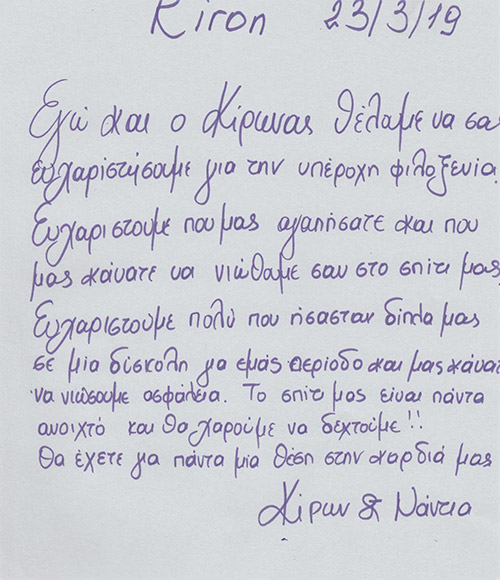 Kiron 23/3/19
Εγώ και ο Κίρωνας θέλαμε να σας
ευχαριστήσουμε για την υπέροχη φιλοξενία.
Ευχαριστούμε που μας αγαπήσατε και που
μας κάνατε να νιώθαμε σαν στο σπίτι μας
Ευχαριστούμε πολύ που ήσασταν δίπλα μας
σε μία δύσκολη για εμάς περίοδο και μας κάνατ
να νιώσουμε ασφάλεια. Το σπίτι μας είναι πάντα
ανοιχτό και θα χαρούμε να δεχτούμε!!
Θα έχετε για πάντα μία θέση στην καρδιά μας
Κίρων & Νάντια